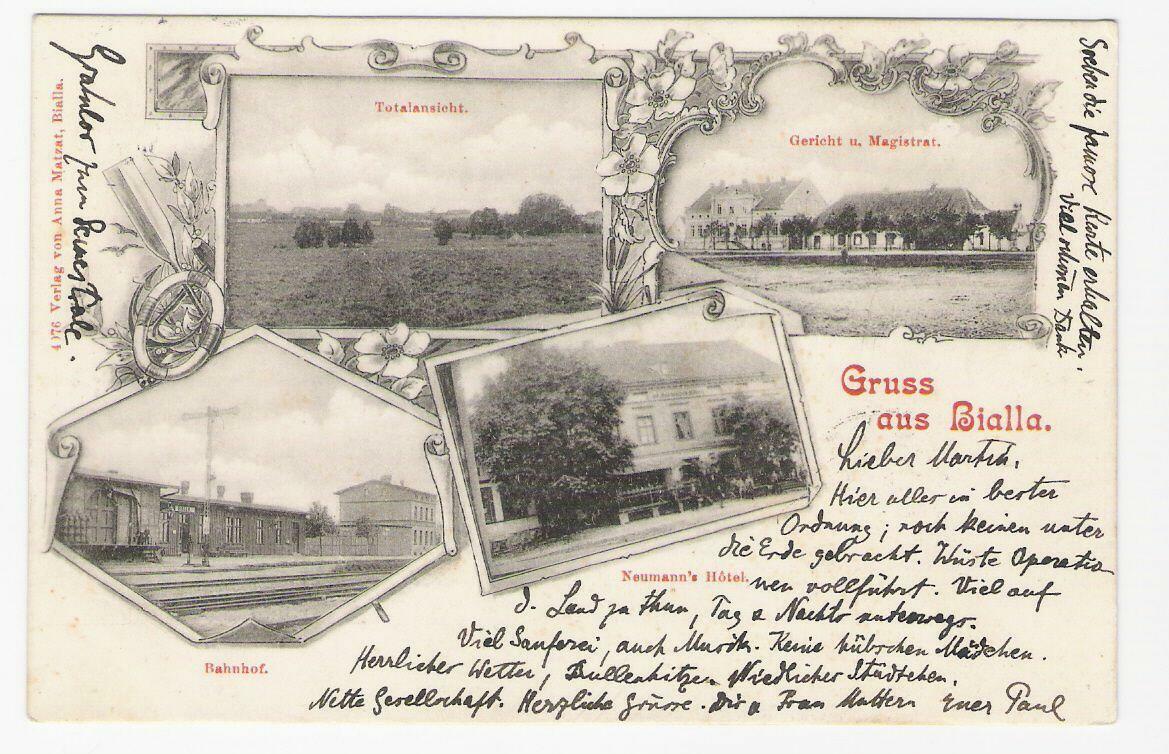 Gratulor zum
4076 Verlag von Anna Matzat, Bialla.
Totalansicht.
Gericht u. Magistrat.
Soeben die famose Karte erhalten.
Viel schönen Dank
Gruss
aus Bialla.
Neumann's Hôtel.
Bahnhof.
BIALLA
Lieber Martin,
Hier alles in bester
Ordnung; noch keinen unter
die Erde gebracht. Wüste Operatio
nen vollführt. Viel auf
d. Land zu thun, Tag u Nachts unterwegs.
Viel Sauferei, auch Musik. Keine hübschen Mädchen.
Herrliches Wetter, Bullenhitze. Niedliches Städtchen.
Nette Gesellschaft. Herzliche Grüsse. Dir u Frau Muttern Euer Paul